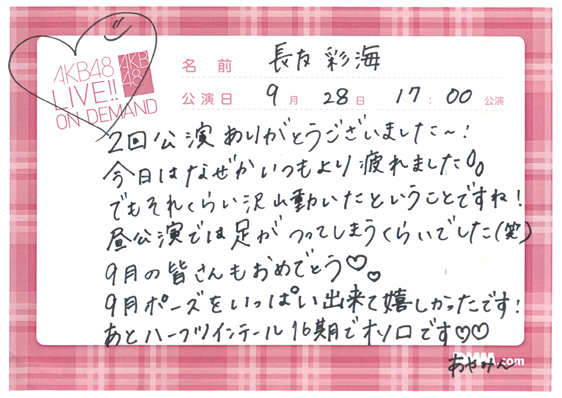 AKB48
LIVE!!
ON DEMAND
AKB
48
名前 長友彩海
公演日 9月 28日 17:00公演
2回公演ありがとうございました〜!
今日はなぜかいつもより疲れました
でもそれくらい沢山動いたということですね!
昼公演では足がつってしまうくらいでした(笑)
9月の皆さんもおめでとう♡♡
9月ポーズをいっぱい出来て嬉しかったです!
あとハーフツインテール16期でオソロです♡♡
DMM.com
あやみん